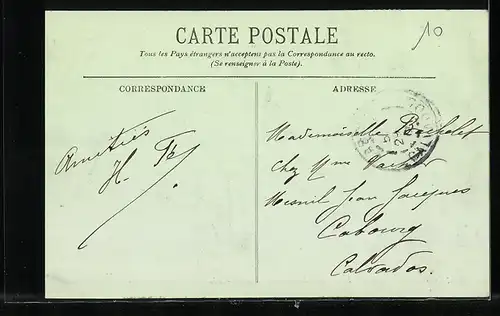 CARTE POSTALE
Tous les Pays étrangers n'acceptent pas la Correspondance au recto.
(Se renseigner à la Poste).
10
CORRESPONDANCE
ADRESSE
Amitiés
H.
Mademoiselle
Chez Mme
Mesnil Jean Jacques
Cabourg
Calvados.